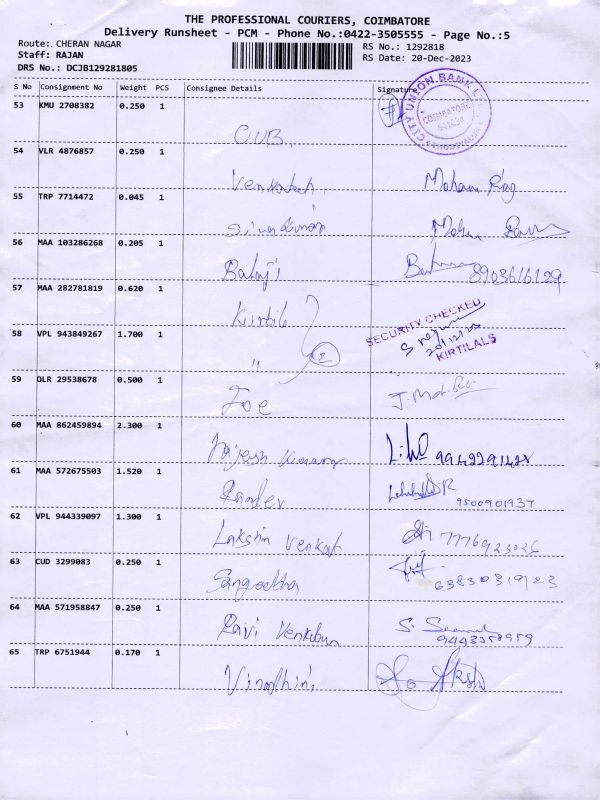 THE PROFESSIONAL COURIERS, COIMBATORE
Delivery Runsheet - PCM - Phone No.:0422-3505555 - Page No.:5
Route: CHERAN NAGAR RS No.: 1292818
Staff: RAJAN RS Date: 20-Dec-2023
DRS No.: DCJB129281805
S No Consignment No Weight PCS Consignee Details Signature
53 KMU 2708382 0.250 1
CUB
CITY UNION BANK
COIMBATORE
54 VLR 4876857 0.250 1
Venkatesh Mohan Raj
55 TRP 7714472 0.045 1
56 MAA 103286268 0.205 1
Balaji 8903616129
57 MAA 282781819 0.620 1
Kirtil
SECURITY CHECKED
58 VPL 943849267 1.700 1
20/12/23
KIRTILALS
" 2
59 DLR 29538678 0.500 1
Joe
60 MAA 862459894 2.300 1
Rajesh Kumar
61 MAA 572675503 1.520 1
9500901937
62 VPL 944339097 1.300 1
Lakshin Venkat 7776923026
63 CUD 3299083 0.250 1
Sangeetha 6383031923
64 MAA 571958847 0.250 1
Ravi 9443358959
65 TRP 6751944 0.170 1